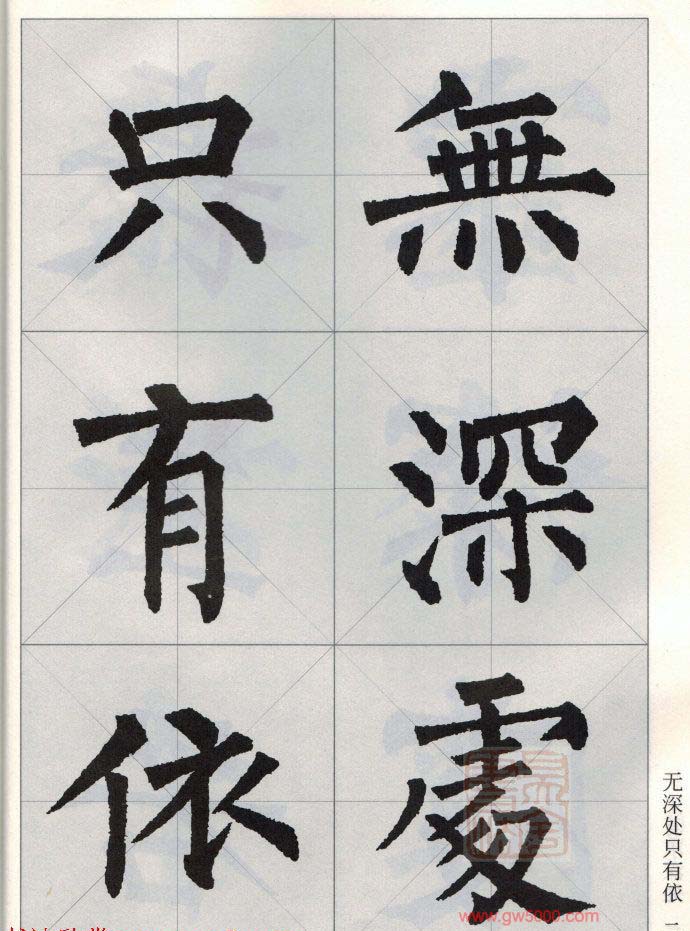 無深處
只有依
无深处只有依
www.gw5000.com